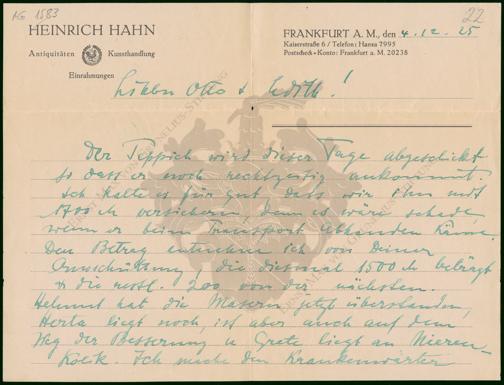 No 1583
22
HEINRICH HAHN
Antiquitäten Kunsthandlung
Einrahmungen
FRANKFURT A. M., den 4.12.25
Kaiserstraße 6 / Telefon: Hansa 7995
Postscheck-Konto: Frankfurt a. M. 20238
Lieber Otto & Edith!
Der Teppich wird dieser Tage abgeschickt
so dass er noch rechtzeitig ankommt.
Ich halte es für gut, dass wir ihn mit
1700 M versichern, denn es wäre schade,
wenn er beim Transport abhanden käme.
Den Betrag entnehme ich von Deiner
Ausschüttung, die diesmal 1500 M beträgt
& die restl. 200 von der nächsten.
Helmut hat die Masern jetzt überstanden,
Herta liegt noch, ist aber auch auf dem
Weg der Besserung u Grete liegt an Nieren-
Kolik. Ich mache den Krankenwärter